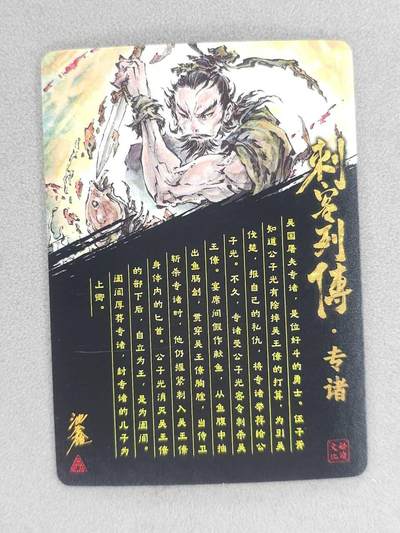 刺客列傳·专诸
吴国屠夫专诸，是位好斗的勇士。伍子胥
知道公子光有除掉吴王僚的打算，为引吴
伐楚，报自己的私仇，将专诸举荐给公
子光。不久，专诸受公子光密令刺杀吴
王僚。宴席间假作献鱼，从鱼腹中抽
出鱼肠剑，贯穿吴王僚胸膛，当侍卫
斩杀专诸时，他仍握紧刺入吴王僚
身体内的匕首。公子光消灭吴王僚
的部下后，自立为王，是为阖闾。
阖闾厚葬专诸，封专诸的儿子为
上卿。
文化